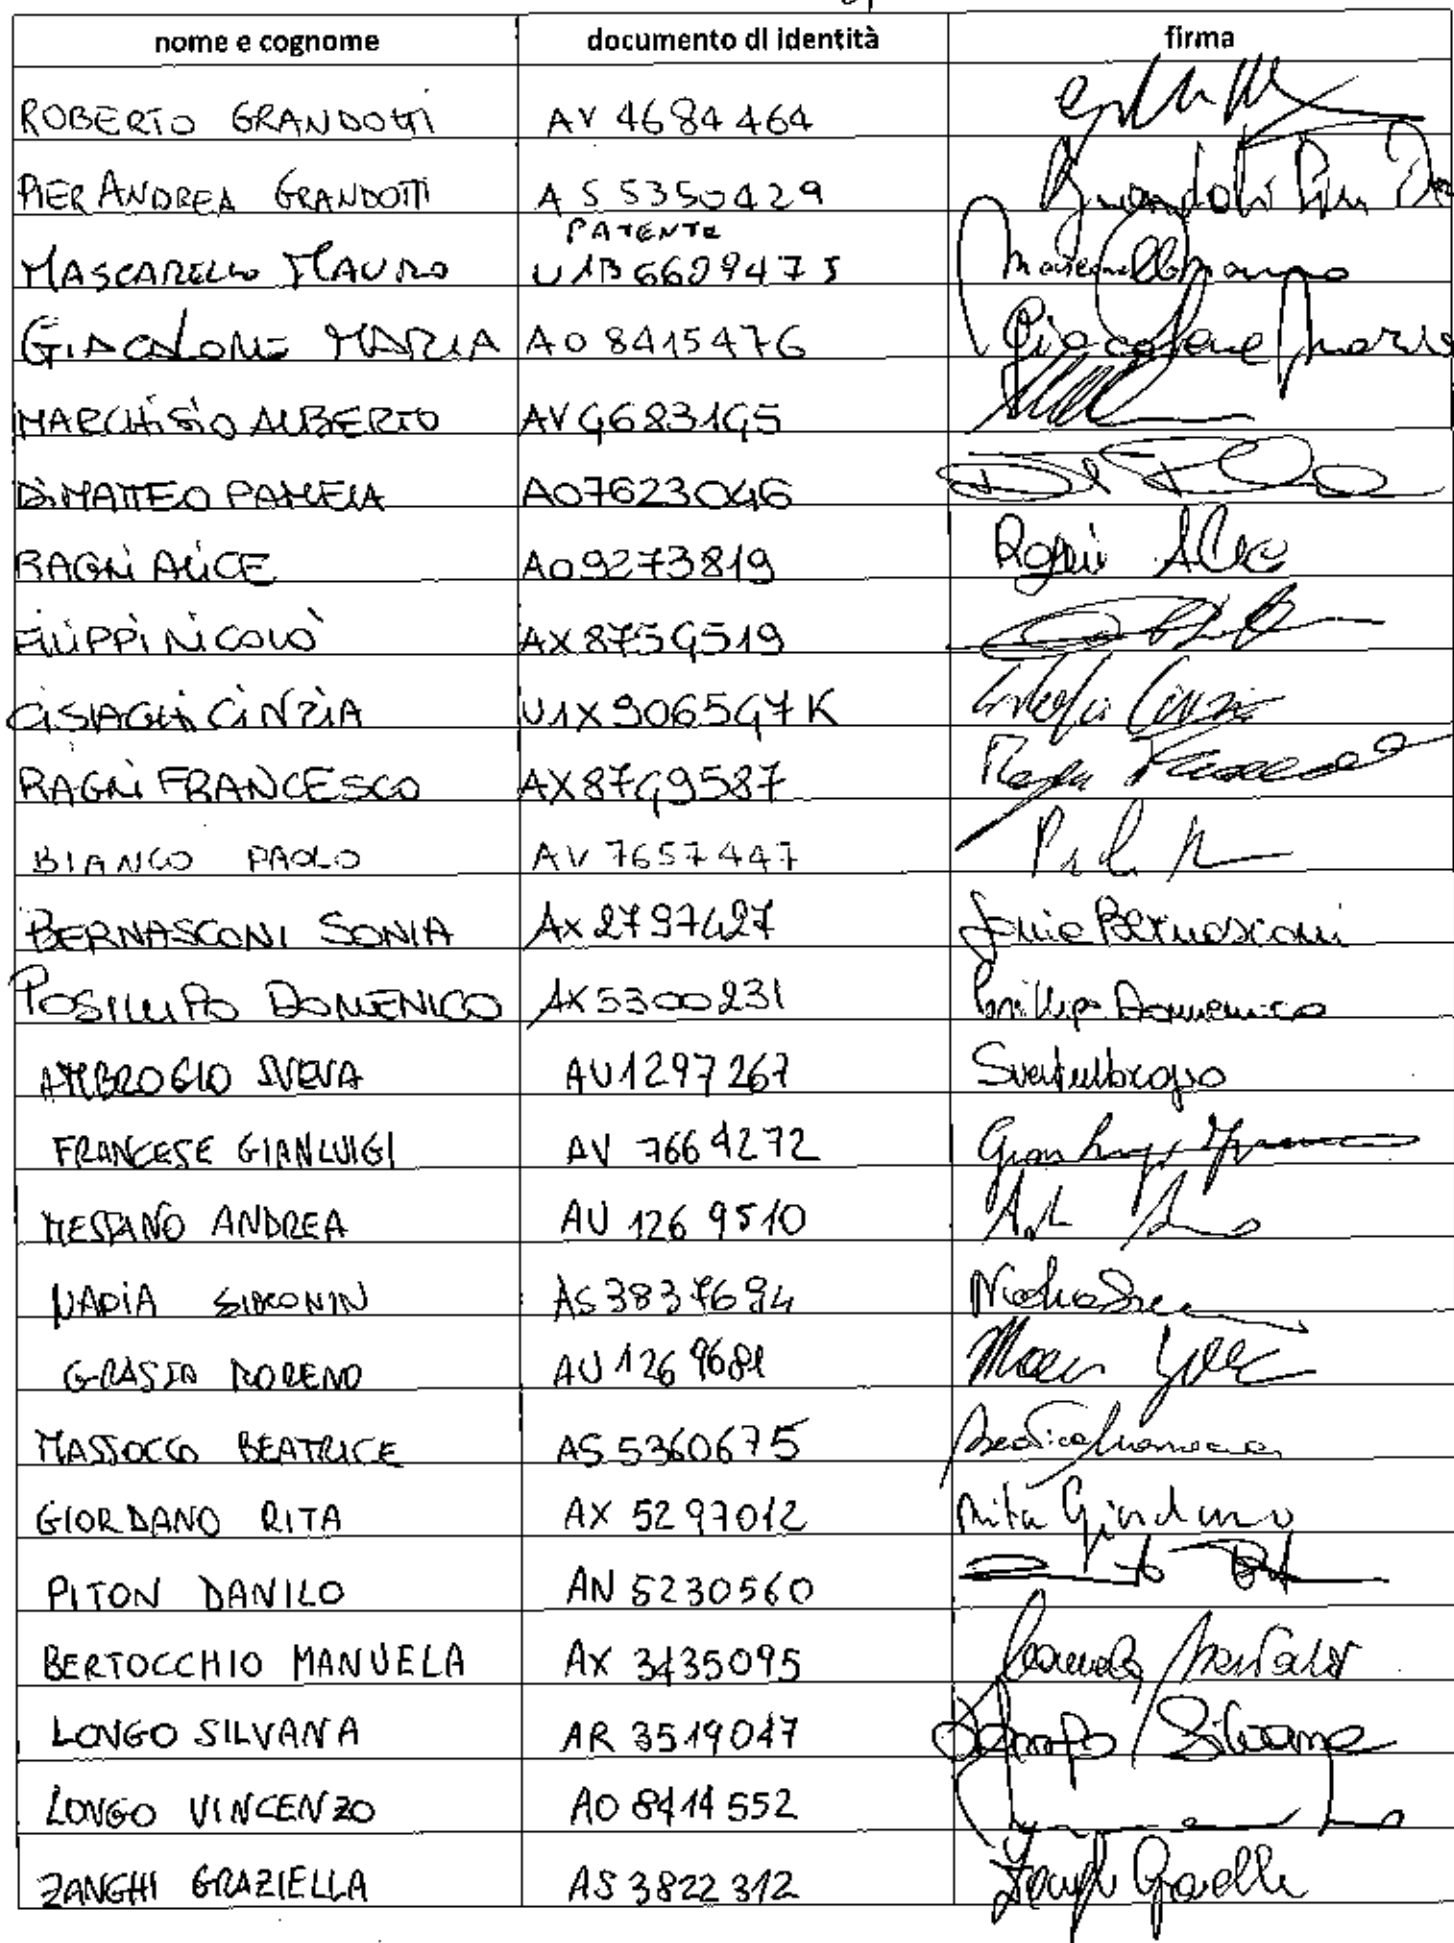 nome e cognome documento di identità firma
ROBERTO GRANDOTTI AV 4684464
PIER ANDREA GRANDOTTI AS 5350429 Grandotti Pier
PATENTE
MASCARELLO MAURO U1B6609475J Mascarello Mauro
GIACALONE MARIA AO 8415476 Giacalone Maria
MARCHISIO ALBERTO AV4683145
DI MATTEO PAMELA AO7623046
RAGNI ALICE AO9273819 Ragni Alice
FILIPPI NICOLÒ AX8759519
CISIAGHI CINZIA U1X906547K Cinzia
RAGNI FRANCESCO AX8749587 Ragni Francesco
BIANCO PAOLO AV 7657447
BERNASCONI SONIA AX 2797427 Sonia Bernasconi
POSILLIPO DOMENICO AX5300231 Posillipo Domenico
AMBROGIO SVEVA AU1297267 Sveva Ambrogio
FRANCESE GIANLUIGI AV 7664272 Gianluigi
MESSANO ANDREA AU 1269510
NADIA SIMONIN AS3837694 Nadia
AU 1269681
MASSOCCO BEATRICE AS 5360675 Beatrice Massocco
GIORDANO RITA AX 5297012 Rita Giordano
PITON DANILO AN 5230560
BERTOCCHIO MANUELA AX 3435095 Manuela
LONGO SILVANA AR 3519047 Longo Silvana
LONGO VINCENZO AO 8414552
ZANGHI GRAZIELLA AS 3822312 Zanghi Graziella